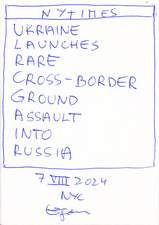 NYTIMES
UKRAINE
LAUNCHES
RARE
CROSS-BORDER
GROUND
ASSAULT
INTO
RUSSIA
7 VIII 2024
NYC